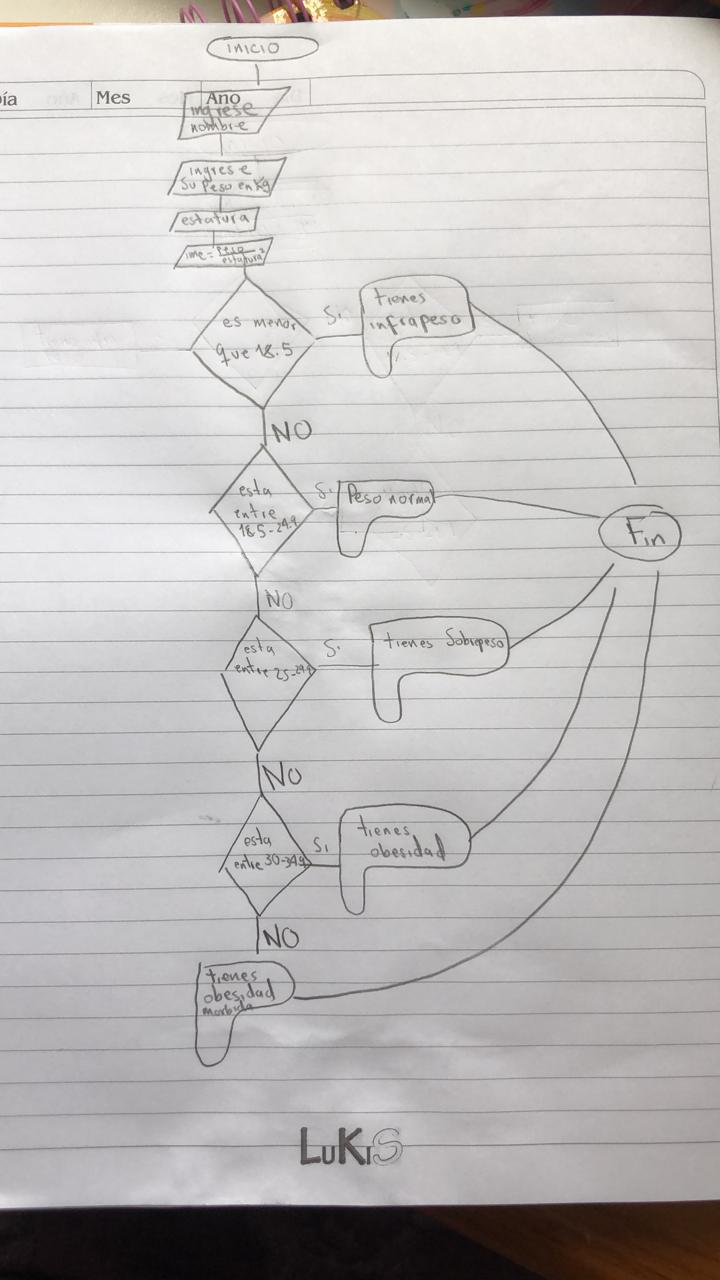 INICIO
Día Mes Ano
ingrese
nombre
ingrese
Su Peso en Kg
estatura
imc = Peso
estatura²
es menor
que 18.5
Si
tienes
infrapeso
NO
esta
entre
18.5-24.9
Si
Peso normal
Fin
NO
esta
entre 25-29.9
Si
tienes Sobrepeso
NO
esta
entre 30-34.9
Si
tienes
obesidad
NO
tienes
obesidad
morbida
LuKiS